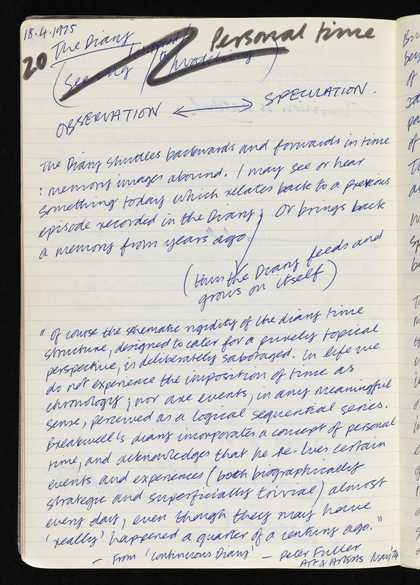 18.4.1975
20 The Diary Personal time
(Seeing
OBSERVATION ⟷ SPECULATION.
The Diary shuttles backwards and forwards in time
: memory images abound. I may see or hear
something today which relates back to a previous
episode recorded in the Diary; Or brings back
a memory from years ago.
(thus the Diary feeds and
grows on itself)
"Of course the schematic rigidity of the diary time
structure, designed to cater for a purely topical
perspective, is deliberately sabotaged. In life we
do not experience the imposition of time as
chronology; nor are events, in any meaningful
sense, perceived as a logical sequential series.
Breakwell's diary incorporates a concept of personal
time, and acknowledges that he re-lives certain
events and experiences (both biographically
strategic and superficially trivial) almost
every day, even though they may have
'really' happened a quarter of a century ago."
- From 'Continuous Diary' - Peter Fuller
Art & Artists Nov/74